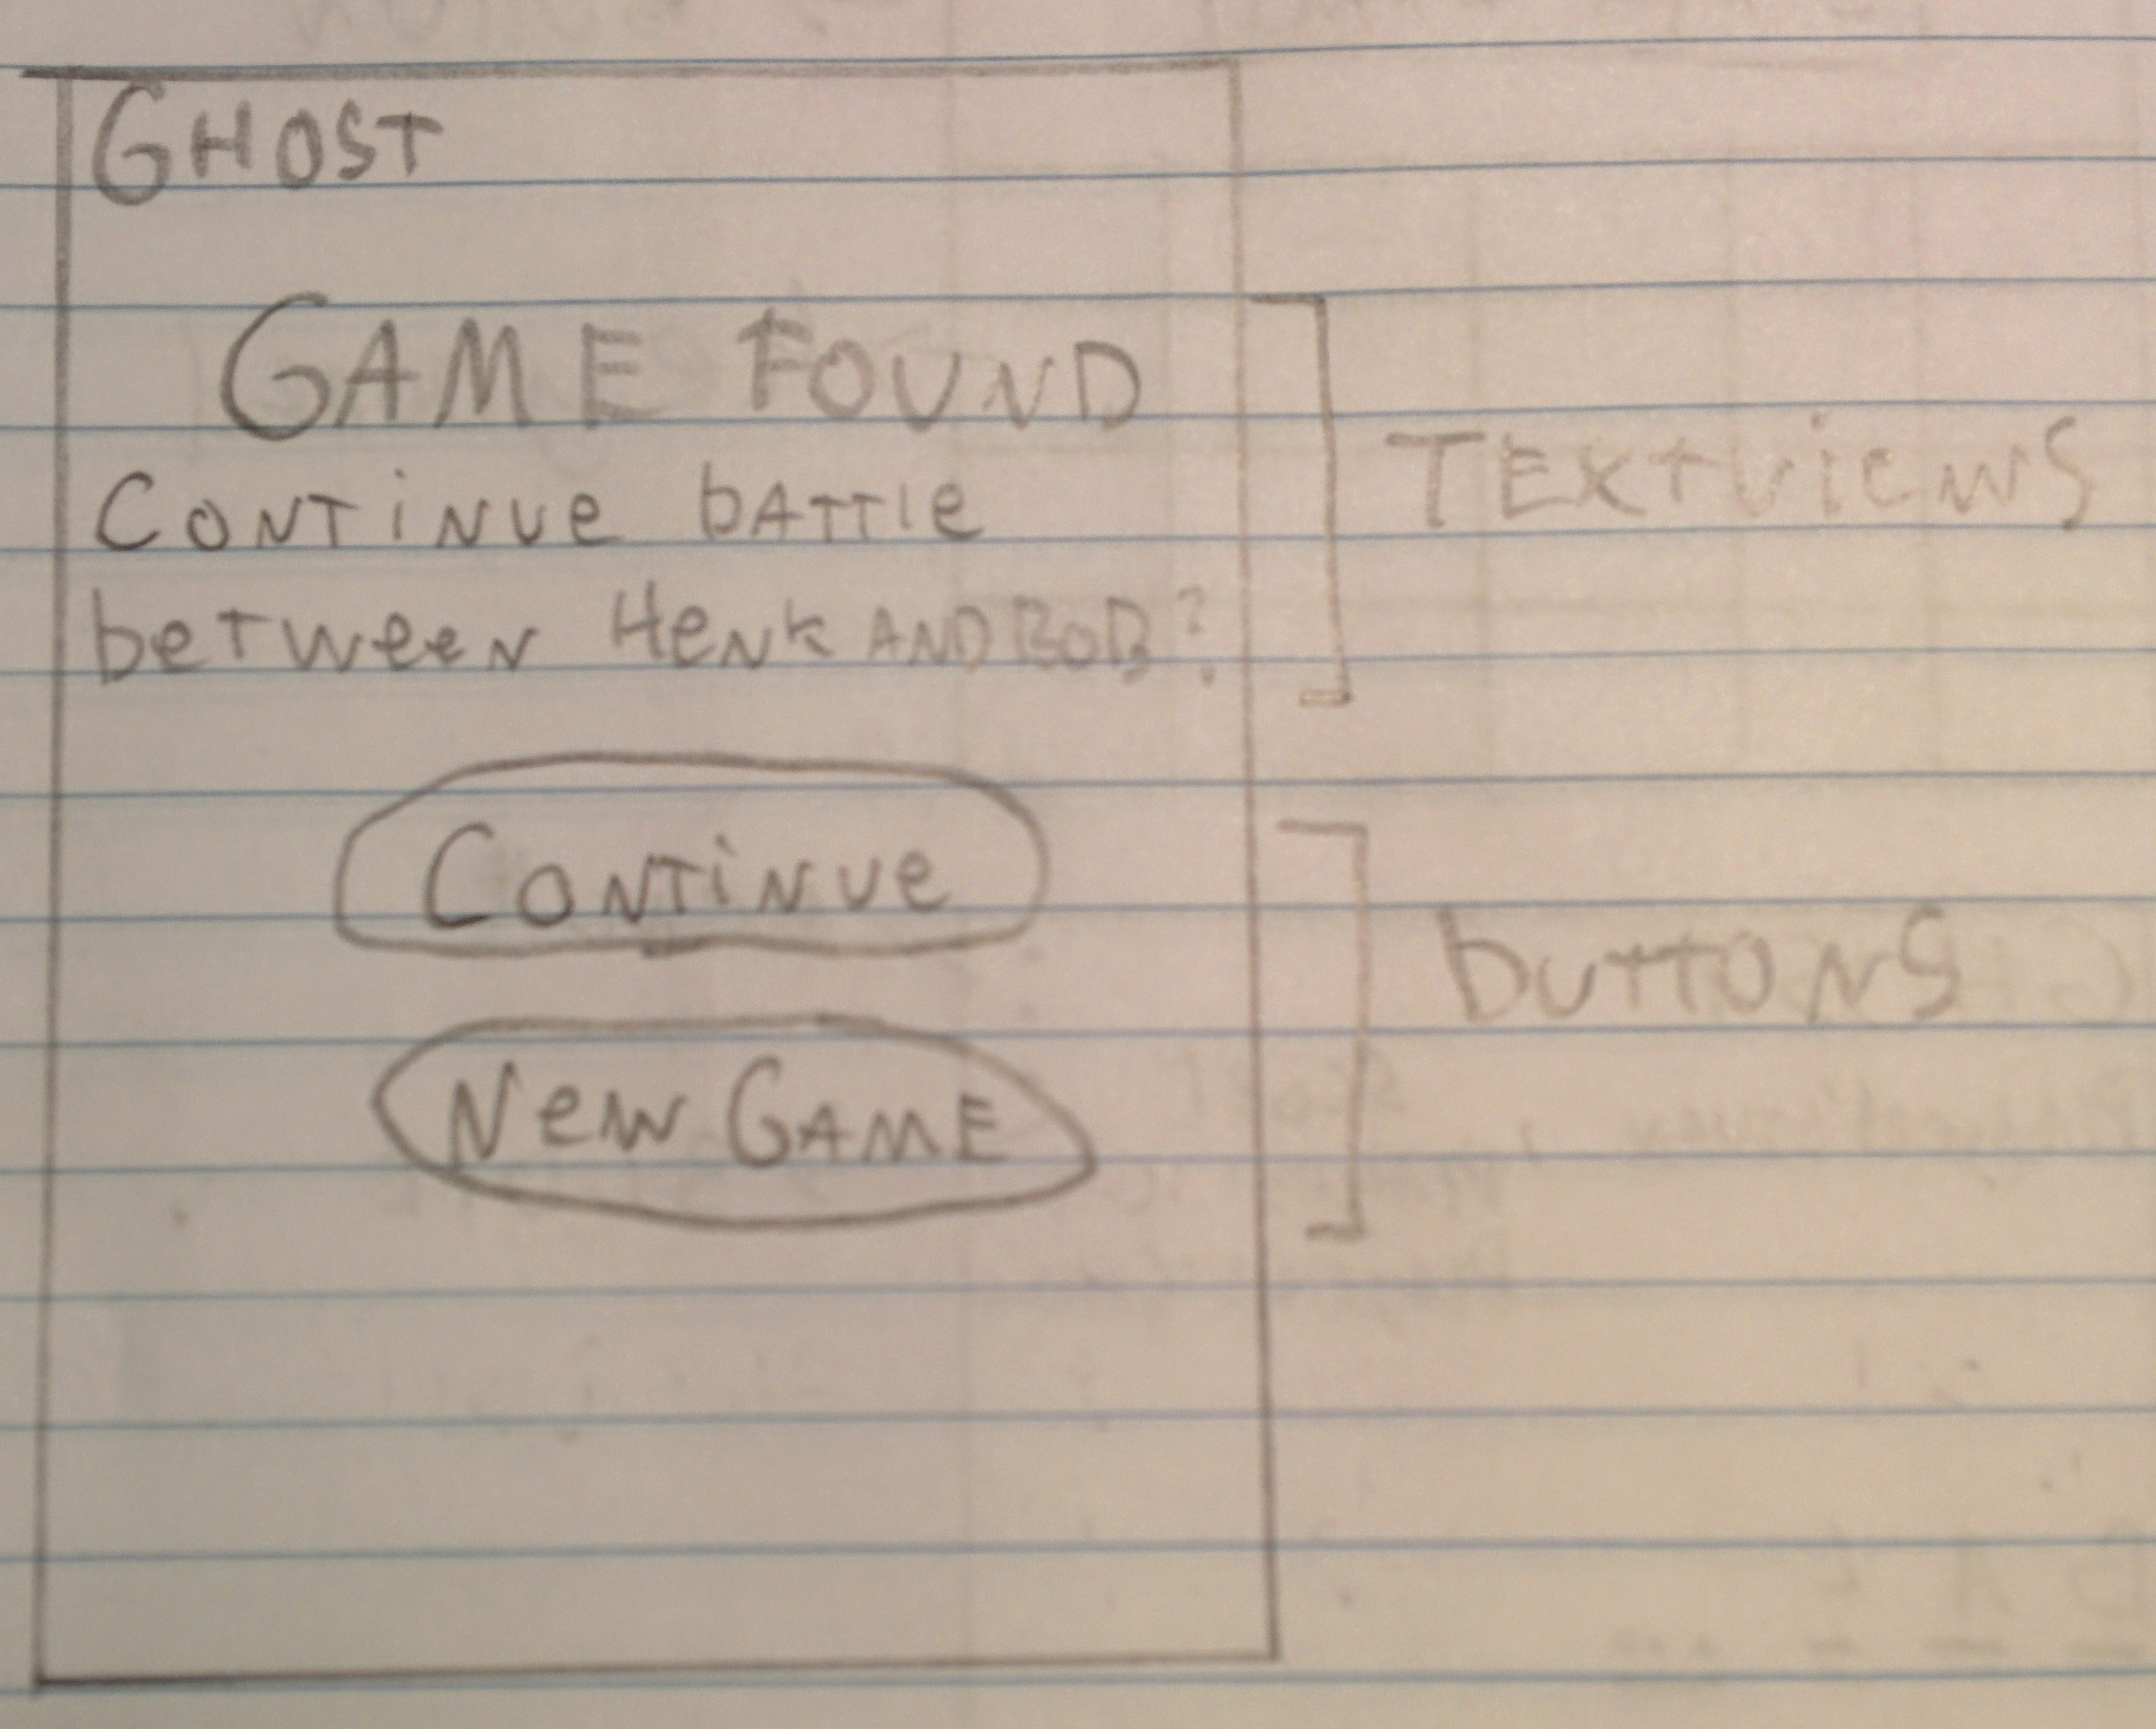 GHOST
GAME FOUND
CONTiNUe bATTle
beTWeeN HeNk AND BOB?
TEXtViewS
CONTiNUe
bUTTONS
New GAME